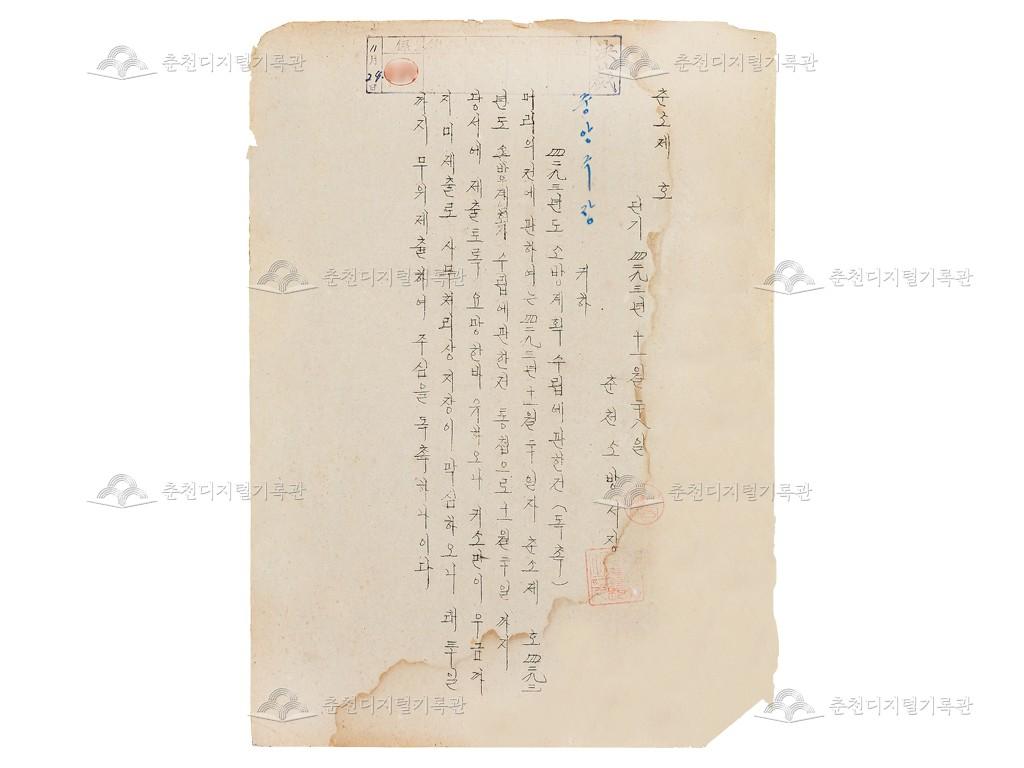 춘소제 호
단기 四二九三년 十一월 二十八일
춘천소방서장
중앙주장 귀하
四二九三년도 소방계획 수립에 관한건 (독촉)
머리의 건에 관하여는 四二九三년 十一월 二十일자 춘소제 호 四二九三
년도 소방계획 수립에관한건 통첩으로 十一월 二十일 까지
당서에 제출토록 요망한바 유하오나 귀소관이 우금까
지 미제출로 사무처리상 지장이 막심하오니 래 일
까지 무위제출하여 주심을 독촉하나이다
11月
24日
춘천디지털기록관
춘천디지털기록관
춘천디지털기록관
춘천디지털기록관
춘천디지털기록관
춘천디지털기록관
춘천디지털기록관
춘천디지털기록관